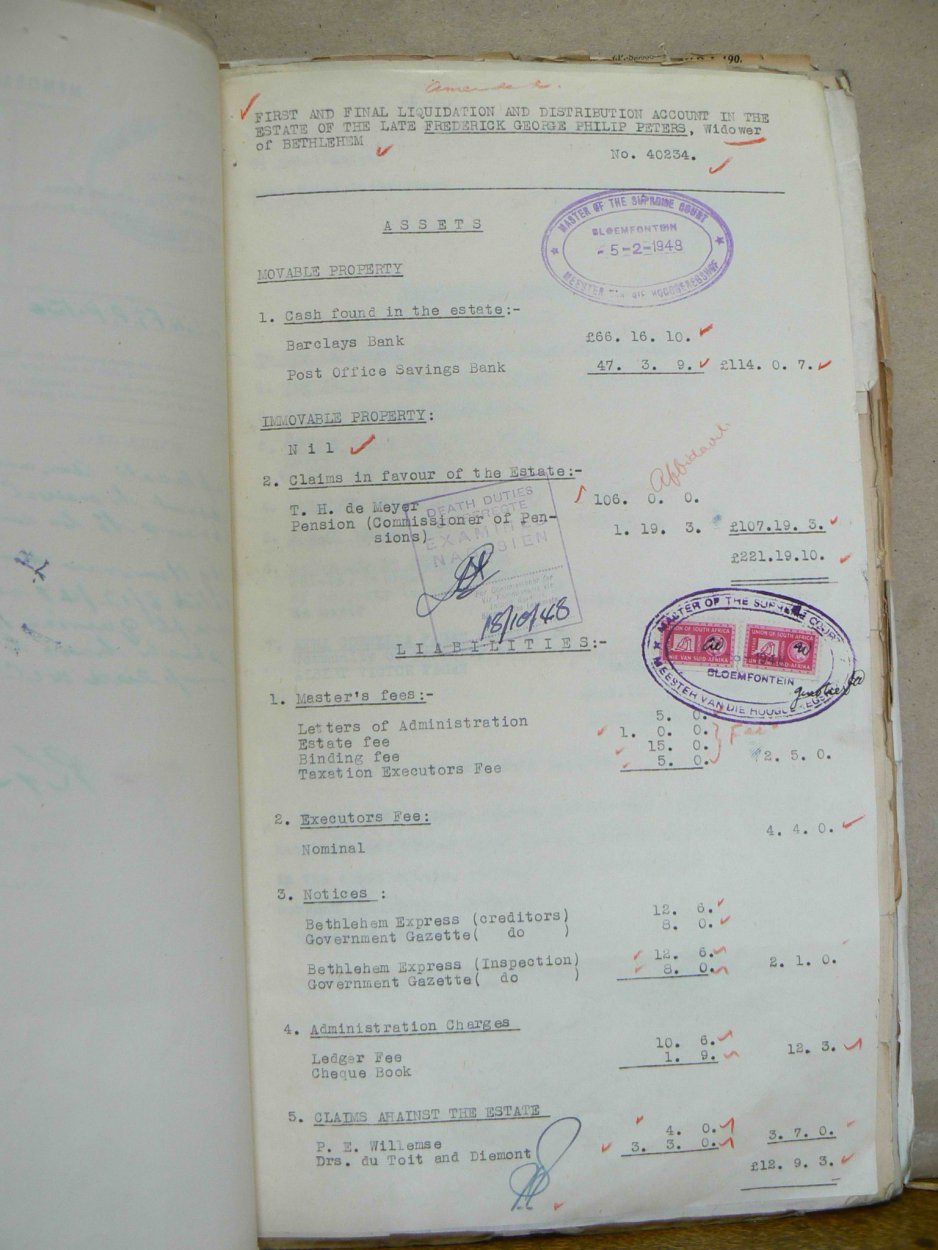 Amended.
FIRST AND FINAL LIQUIDATION AND DISTRIBUTION ACCOUNT IN THE
ESTATE OF THE LATE FREDERICK GEORGE PHILIP PETERS, Widower
of BETHLEHEM
No. 40234.
MASTER OF THE SUPREME COURT
BLOEMFONTEIN
-5-2-1948
MEESTER VAN DIE HOOGGEREGSHOF
ASSETS
MOVABLE PROPERTY
1. Cash found in the estate:-
Barclays Bank £66. 16. 10.
Post Office Savings Bank 47. 3. 9. £114. 0. 7.
IMMOVABLE PROPERTY:
Nil
2. Claims in favour of the Estate:-
Affidavit.
T. H. de Meyer 106. 0. 0.
Pension (Commissioner of Pen-
sions) 1. 19. 3. £107.19. 3.
£221.19.10.
DEATH DUTIES
EXAMINED
NAGESIEN
18/10/48
LIABILITIES:-
MASTER OF THE SUPREME COURT
UNION OF SOUTH AFRICA UNION OF SOUTH AFRICA
UNIE VAN SUID-AFRIKA UNIE VAN SUID-AFRIKA
BLOEMFONTEIN
MEESTER VAN DIE HOOGGEREGSHOF
1. Master's fees:-
Letters of Administration 5. 0.
Estate fee 1. 0. 0.
Binding fee 15. 0.
Taxation Executors Fee 5. 0. 2. 5. 0.
2. Executors Fee:
4. 4. 0.
Nominal
3. Notices :
Bethlehem Express (creditors) 12. 6.
Government Gazette( do ) 8. 0.
Bethlehem Express (Inspection) 12. 6.
Government Gazette( do ) 8. 0. 2. 1. 0.
4. Administration Charges
Ledger Fee 10. 6.
Cheque Book 1. 9. 12. 3.
5. CLAIMS AHAINST THE ESTATE
P. E. Willemse 4. 0.
Drs. du Toit and Diemont 3. 3. 0. 3. 7. 0.
£12. 9. 3.